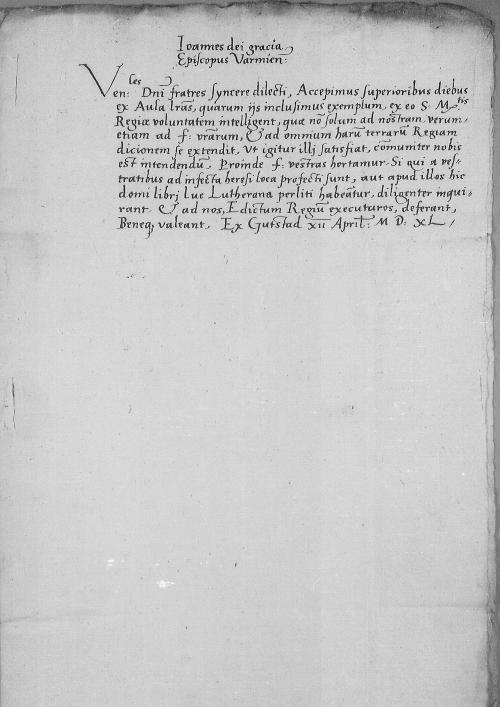 Ioannes dei gracia
Episcopus Varmien:
Ven:les Dni fratres syncere dilecti, Accepimus superioribus diebus
ex Aula lr̃as, quarum ijs inclusimus exemplum, ex eo S. M.tis
Regiæ voluntatem intelligent, quæ nõ solum ad nostram verum-
etiam ad f: vr̃arum, & ad omnium harũ terrarũ Regiam
dicionem se extendit. Vt igitur illj satisfiat, cõmuniter nobis
est intendendũ. Proinde f: vestras hortamur. Si qui a ves-
tratibus ad infecta heresi loca profecti sunt, aut apud illos hic
domi librj Lue Lutherana perliti habeãtur, diligenter inqui-
rant & ad nos, Edictum Regiũ executuros, deferant,
Beneq, valeant. Ex Gutstad xii April: M D: XL /